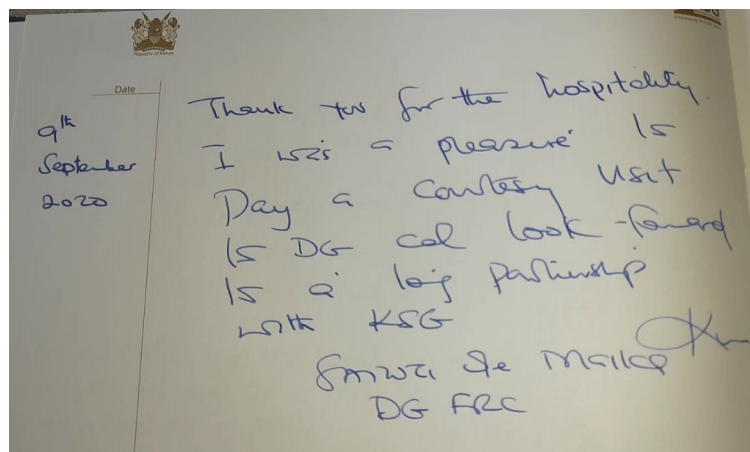 Republic of Kenya
Date
9th
September
2020
Thank you for the hospitality.
I was a pleasure to
Pay a courtesy visit
to DG and look forward
to a long partnership
with KSG
Ole Maika
DG FRC